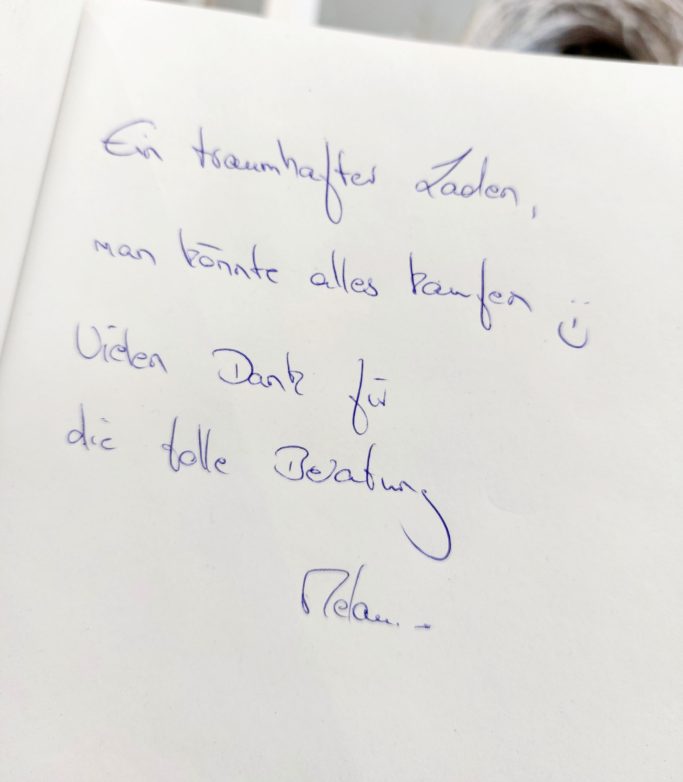 Ein traumhafter Laden,
man könnte alles kaufen :)
Vielen Dank für
die tolle Beratung